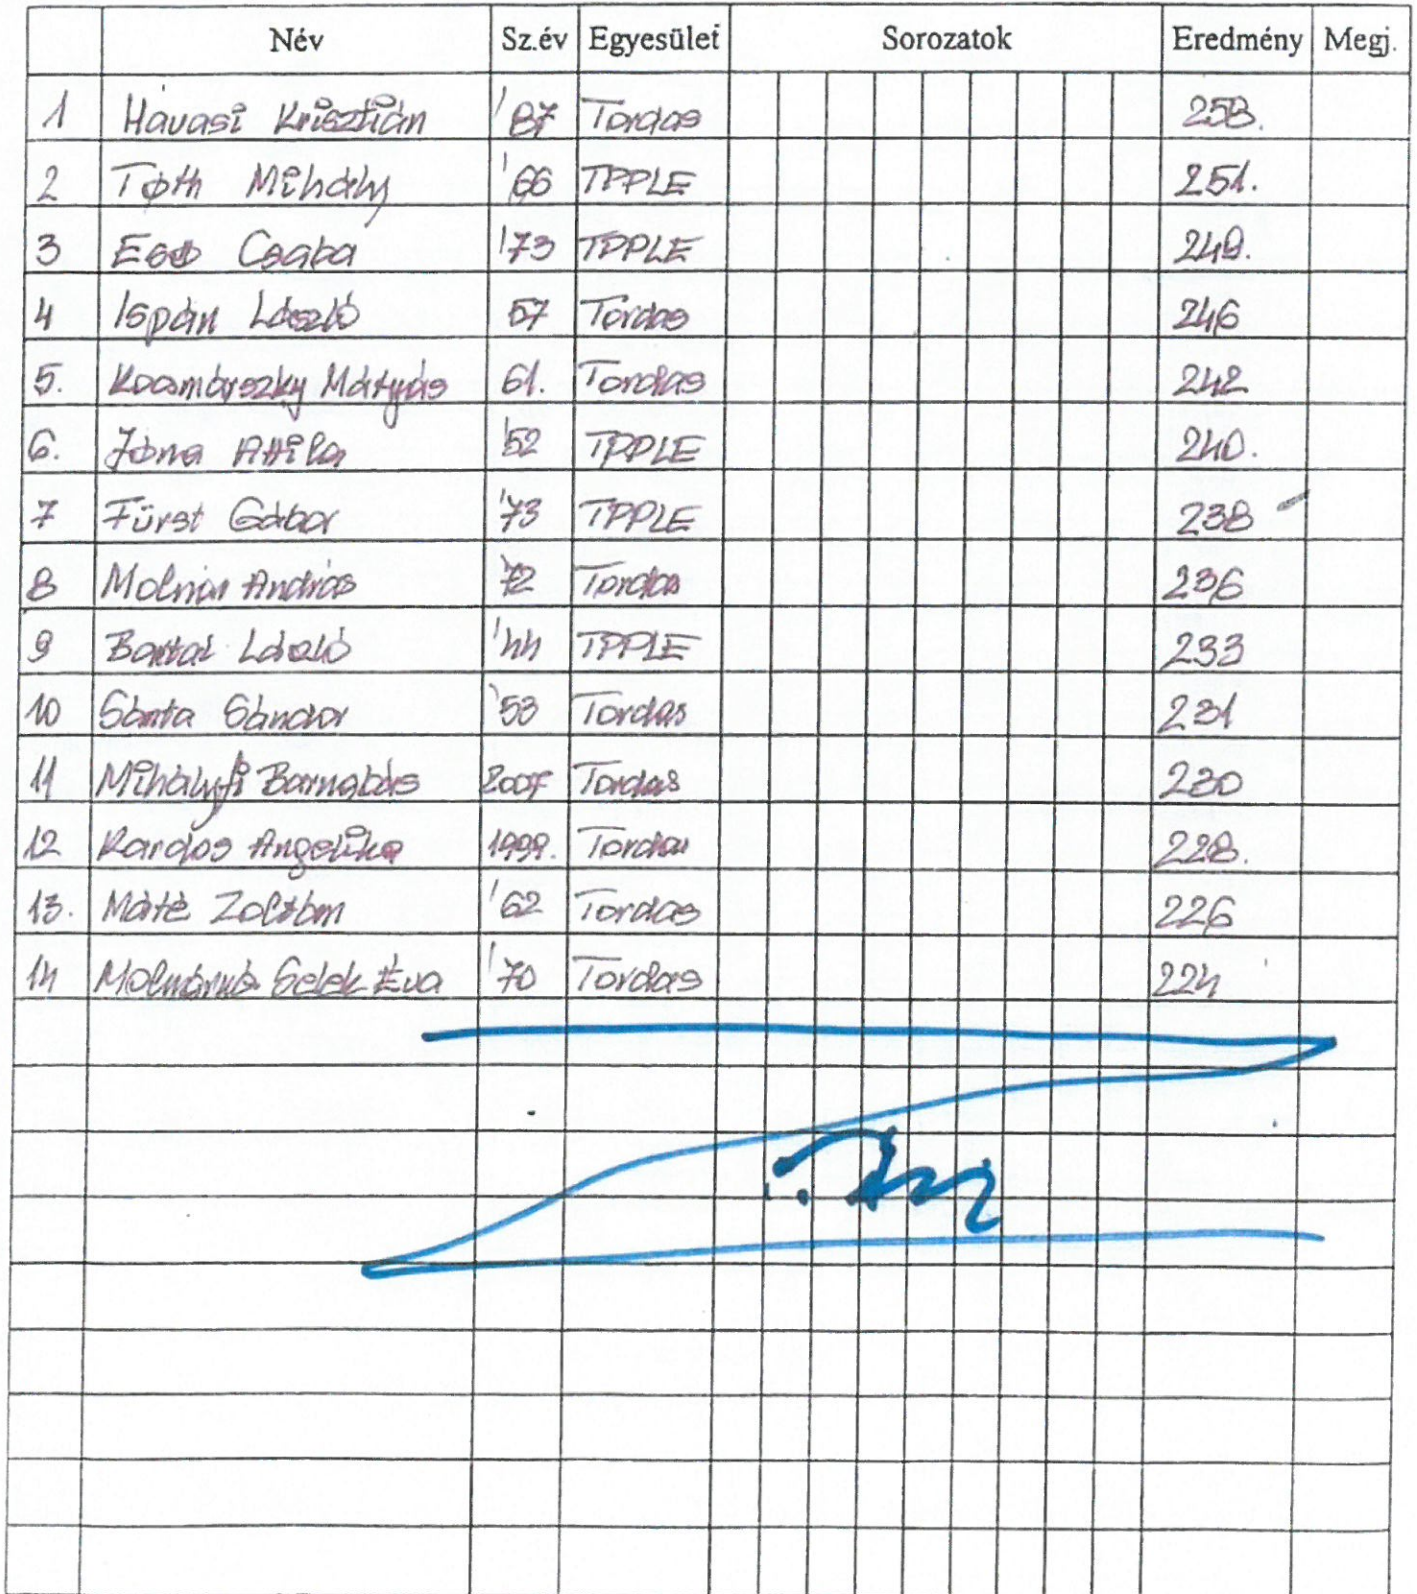 Név Sz.év Egyesület Sorozatok Eredmény Megj.
1 Havasi Krisztián '87 Tordas 258.
2 Tóth Mihály '66 TPPLE 251.
3 Eső Csaba '73 TPPLE 249.
4 Ispán László 57 Tordas 246
5. Kocsmárszky Mátyás 61. Tordas 242
6. Jóna Attila '52 TPPLE 240.
7 Fürst Gábor '73 TPPLE 238
8 Molnár András '72 Tordas 236
9 Bartal László '44 TPPLE 233
10 Sánta Sándor '53 Tordas 231
11 Mihályfi Barnabás 2007 Tordas 230
12 Kardos Angelika 1999. Tordas 228.
13. Máté Zoltán '62 Tordas 226
14 Molnárné Selek Éva '70 Tordas 224